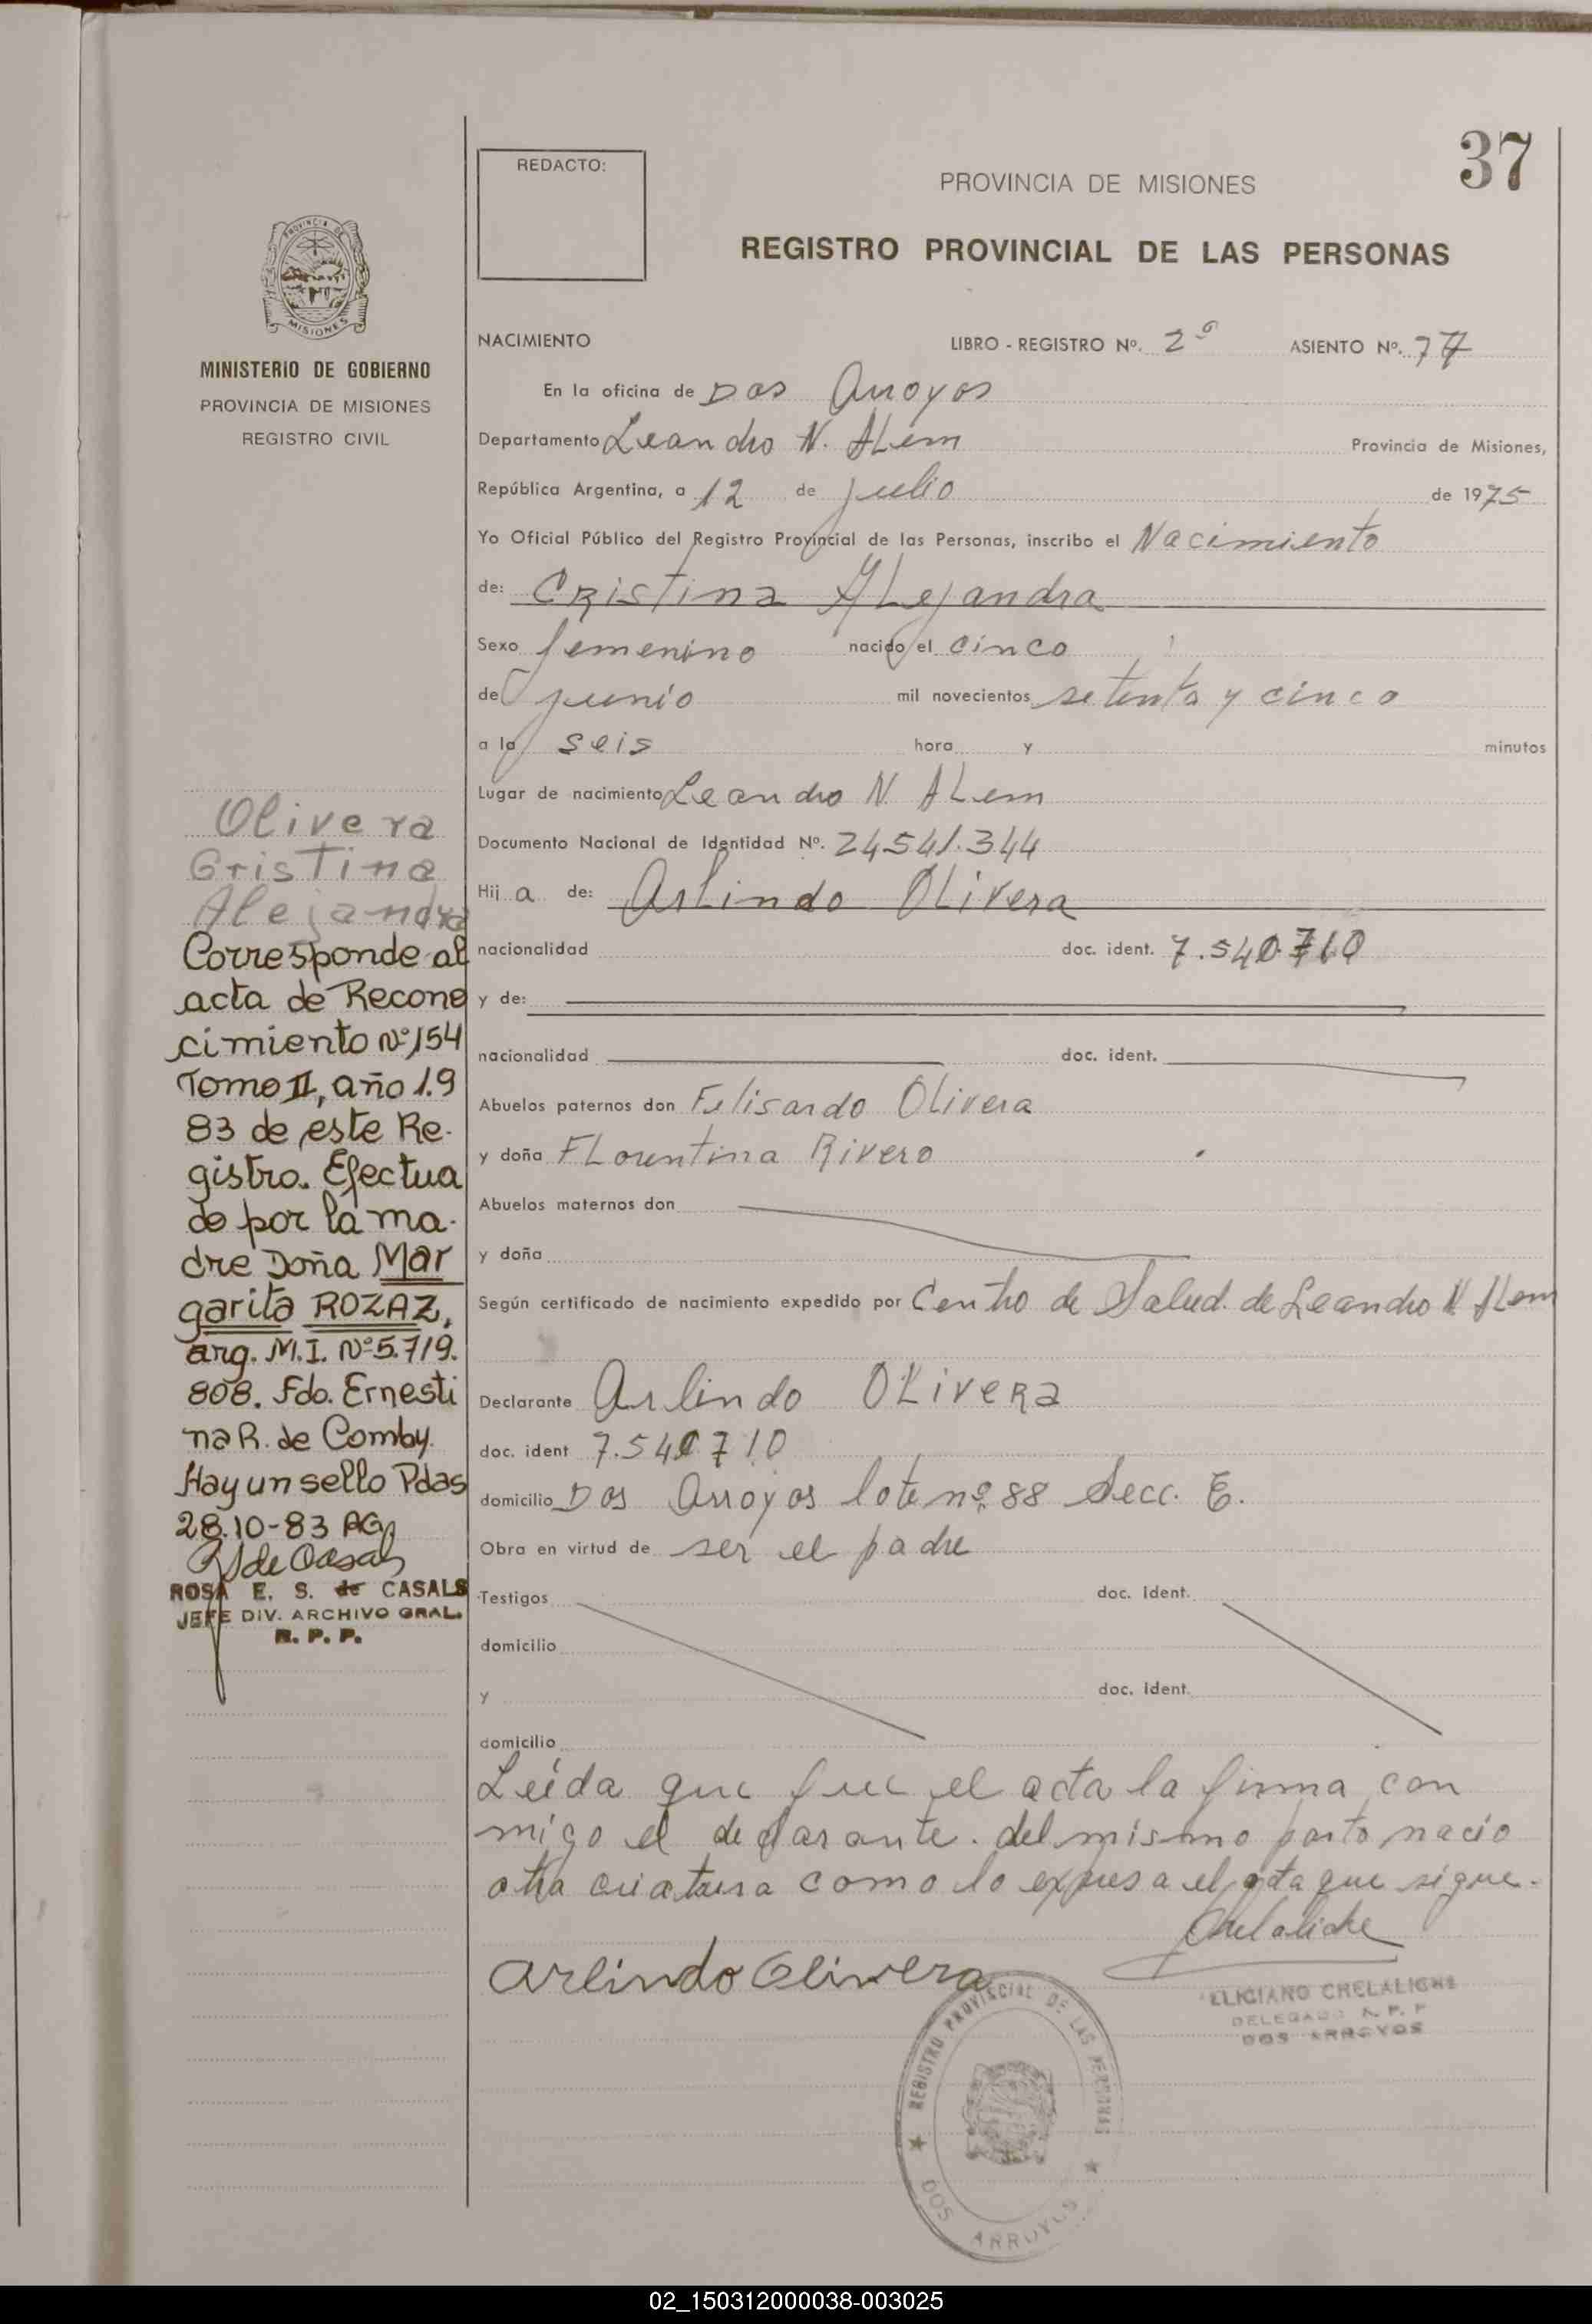 37
REDACTO:
PROVINCIA DE MISIONES
REGISTRO PROVINCIAL DE LAS PERSONAS
PROVINCIA DE
MISIONES
MINISTERIO DE GOBIERNO
PROVINCIA DE MISIONES
REGISTRO CIVIL
NACIMIENTO LIBRO - REGISTRO Nº. 2º ASIENTO Nº. 77
En la oficina de Dos Arroyos
Departamento Leandro N. ALem Provincia de Misiones,
República Argentina, a 12 de julio de 1975
Yo Oficial Público del Registro Provincial de las Personas, inscribo el Nacimiento
de: CRistina ALejandra
Sexo femenino nacido el cinco
de junio mil novecientos setenta y cinco
a la seis hora y minutos
Lugar de nacimiento Leandro N. ALem
Documento Nacional de Identidad Nº. 24541.344
Hij a de: ArLindo OLivera
nacionalidad doc. ident. 7.540.710
y de:
nacionalidad doc. ident.
Abuelos paternos don Felisardo OLivera
y doña FLorentina Rivero
Abuelos maternos don
y doña
Según certificado de nacimiento expedido por Centro de Salud. de Leandro N ALem
Declarante Arlindo OLiveRa
doc. ident 7.540710
domicilio Dos Arroyos lote nº 88 Secc. E.
Obra en virtud de ser el padre
Testigos doc. ident.
domicilio
y doc. ident.
domicilio
Leída que fue el acta la firma con
migo el declarante. del mismo parto nacio
otra criatura como lo expresa el acta que sigue.
Chelaliche
Arlindo Olivera
ELICIANO CHELALICHE
DELEGADO R. P. P
DOS ARROYOS
REGISTRO PROVINCIAL DE LAS PERSONAS
DOS ARROYOS
Olivera
Cristina
Alejandra
Corresponde al
acta de Recono
cimiento Nº 154
Tomo II, año 1.9
83 de este Re-
gistro. Efectua
do por la ma-
dre Doña Mar
garita ROZAZ,
arg. M.I. Nº 5.719.
808. Fdo. Ernesti
na R. de Comby.
Hay un sello Pdas
28.10-83 AG
ROSA E. S. de CASALS
JEFE DIV. ARCHIVO GRAL.
R. P. P.
02_150312000038-003025